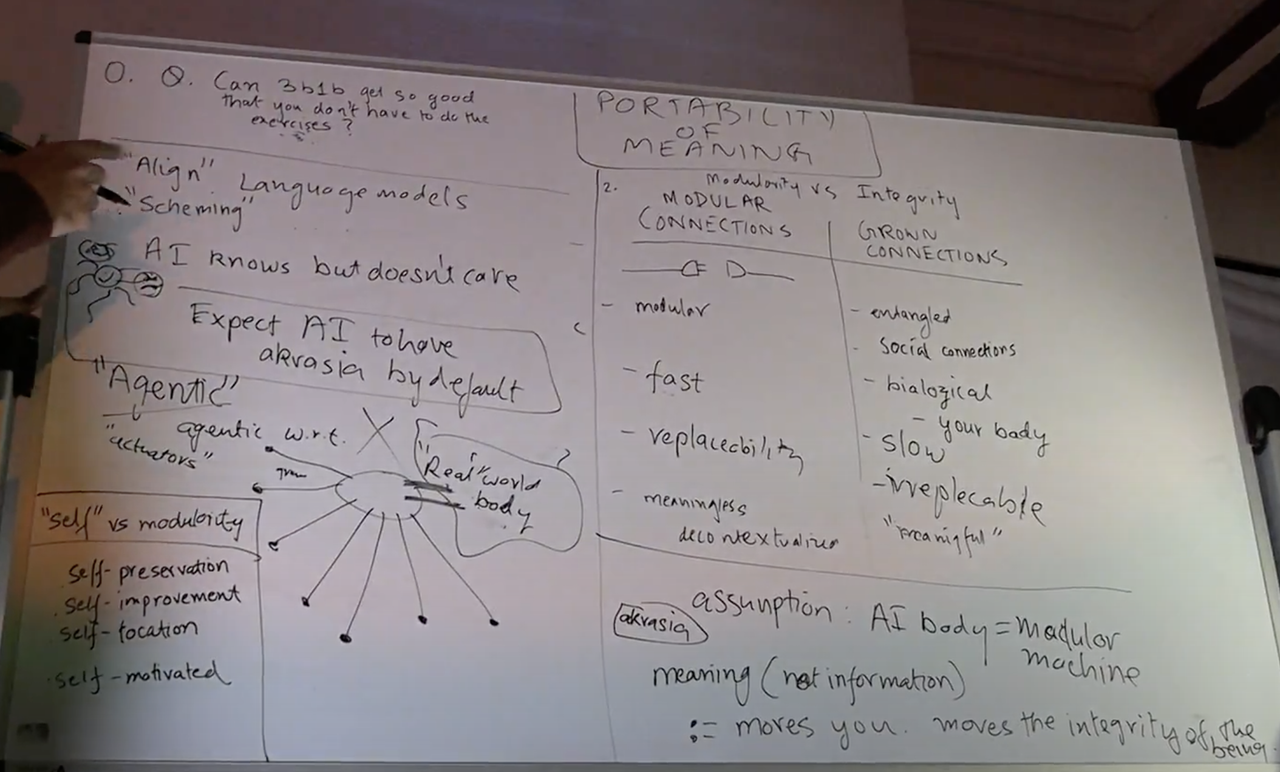 O. Q. Can 3b1b get so good
that you don't have to do the
exercises?
"Align" Language models
"Scheming"
AI knows but doesn't care
Expect AI to have
akrasia by default
"Agentic"
agentic w.r.t.
"actuators"
"Real" world
body
?
"self" vs modularity
self-preservation
self-improvement
self-location
self-motivated
PORTABILITY
OF
MEANING
2. Modularity vs Integrity
MODULAR
CONNECTIONS
- modular
- fast
- replaceability
- meaningless
decontextualized
GROWN
CONNECTIONS
- entangled
- social connections
- bialogical
- your body
- slow
- irreplecable
"meaningful"
assumption: AI body = modular
machine
akrasia
meaning (not information)
:= moves you. moves the integrity of the
being.